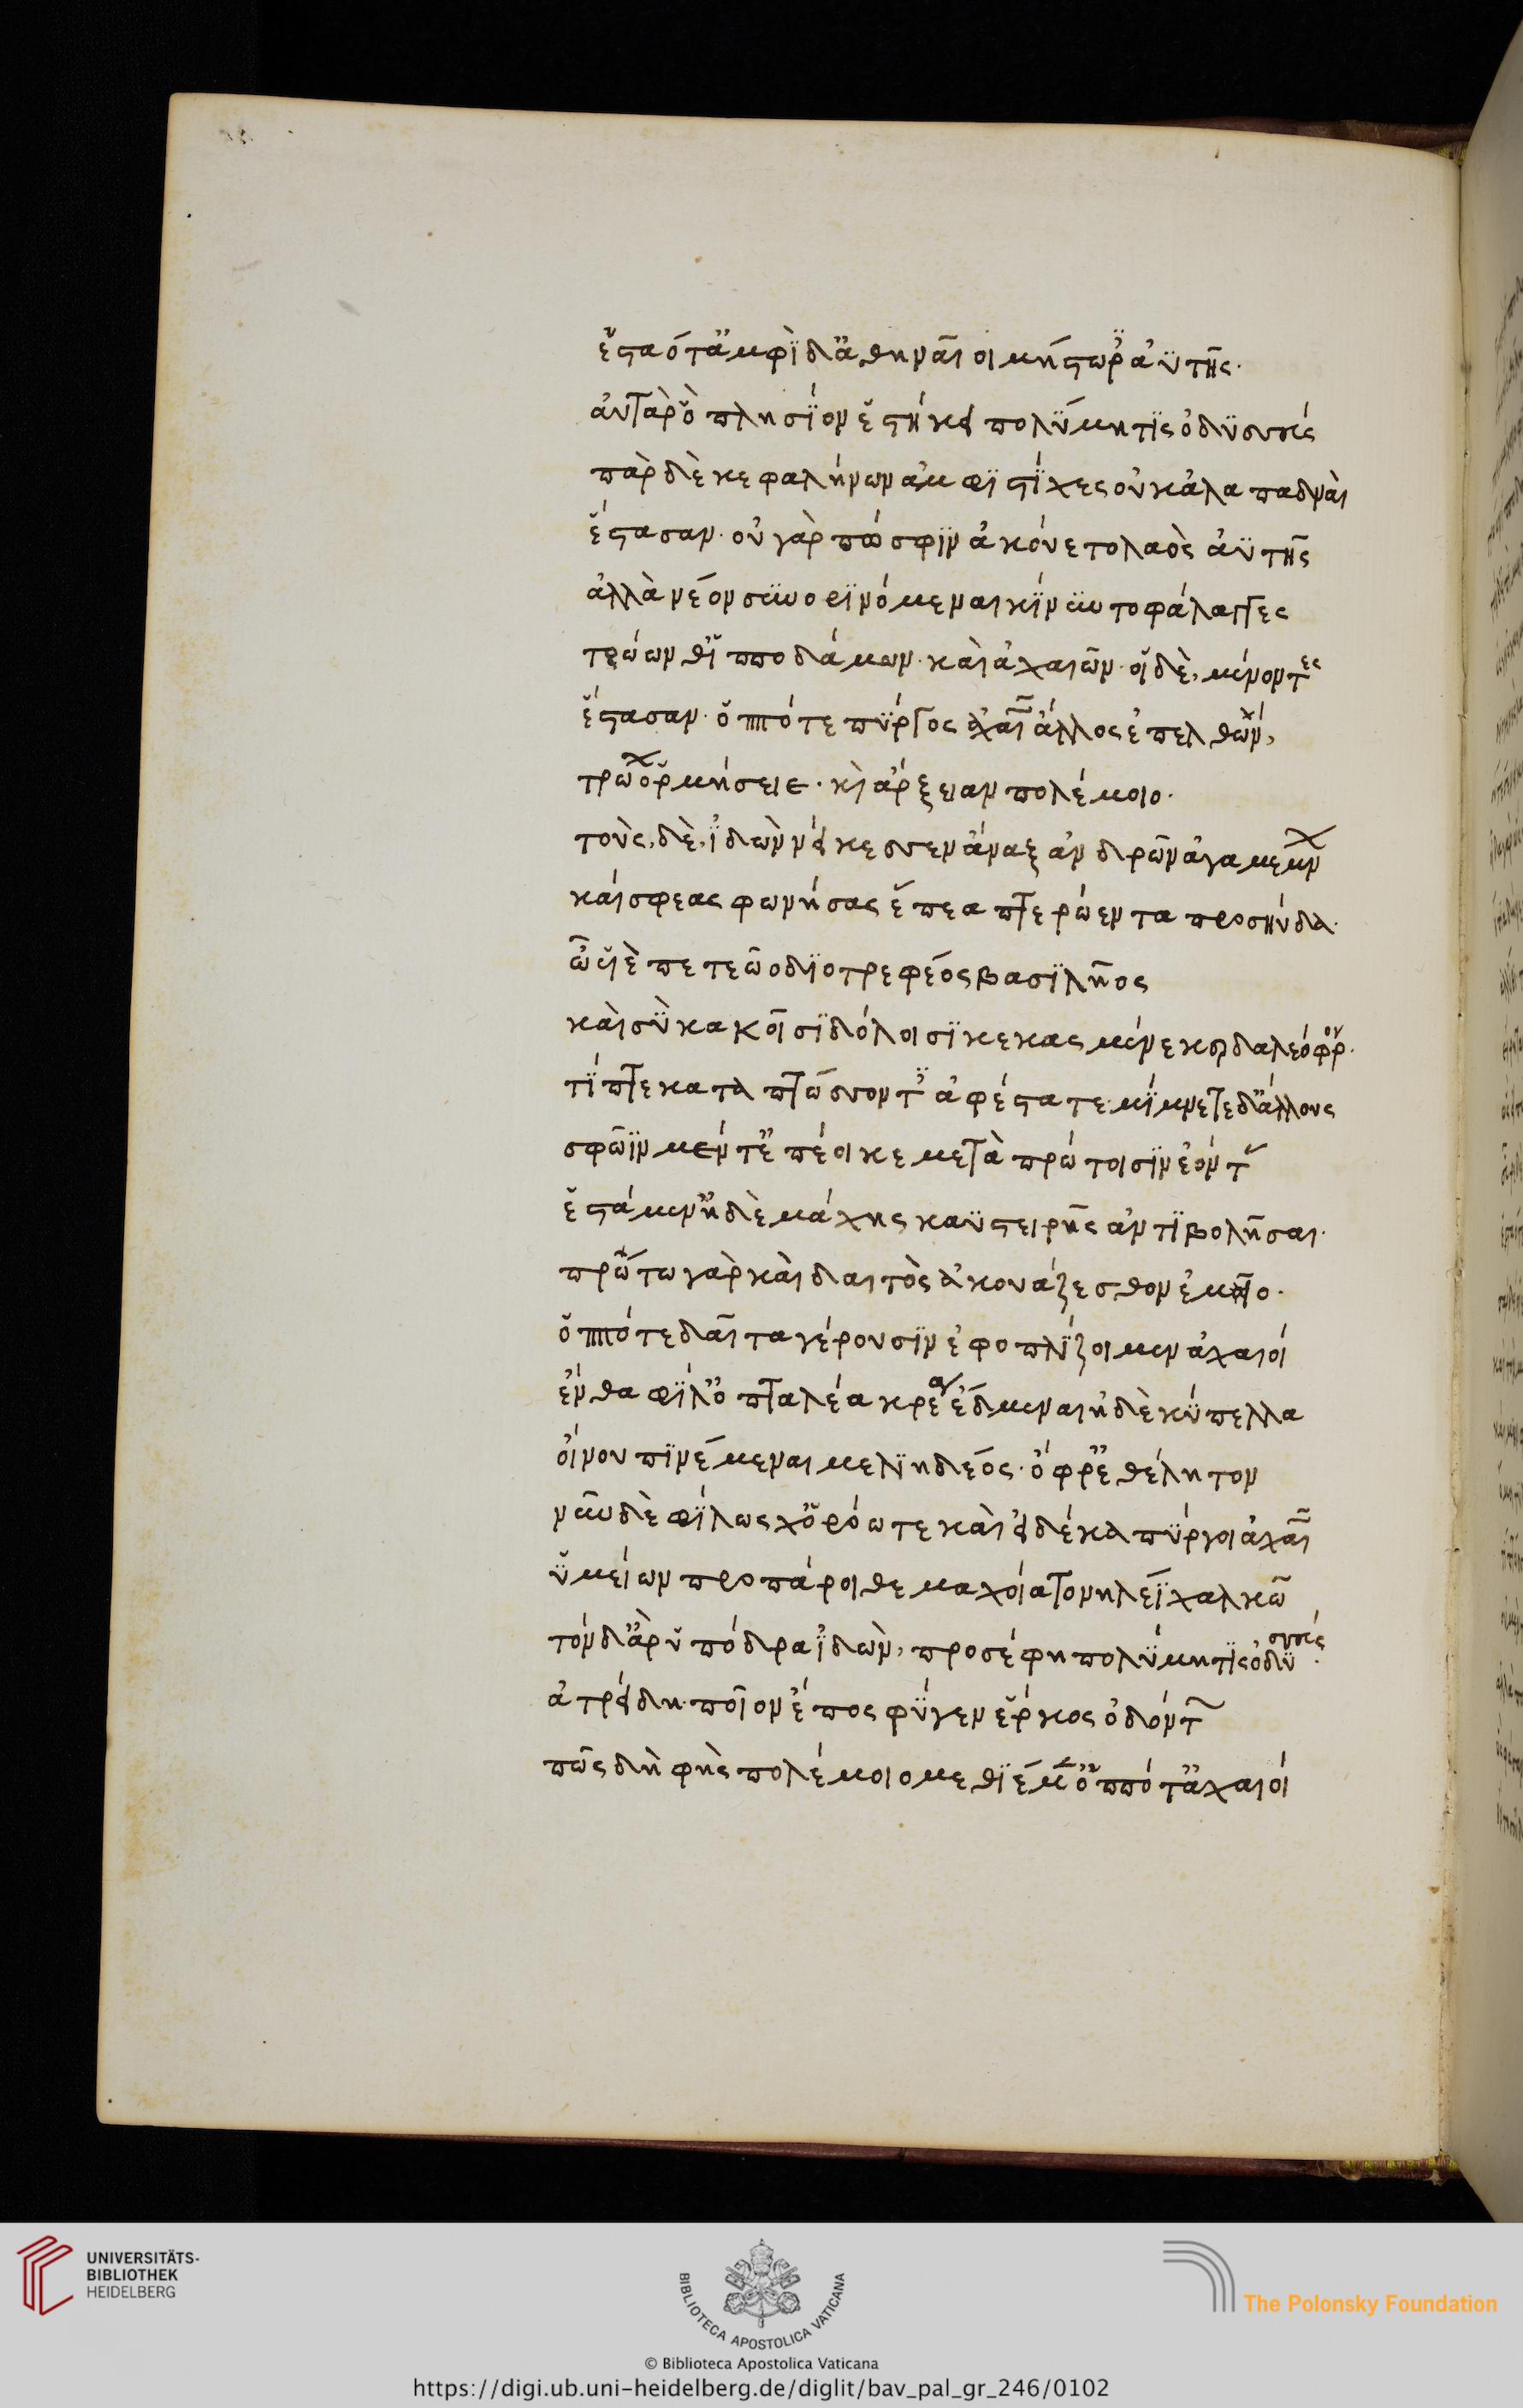 ἕστα ὅτ' ἀμφὶ δ' Ἀθηναῖοι μήστωρ' ἀϋτῆς.
αὐτὰρ ὃ πλησίον ἑστήκει πολύμητις ὀδυσσεύς
πὰρ δὲ κεφαλλήνων ἀμφὶ στίχες οὐκ ἀλαπαδναὶ
ἕστασαν. οὐ γάρ πώ σφιν ἀκούετο λαὸς ἀϋτῆς
ἀλλὰ νέον συνορινόμεναι κίνυντο φάλαγγες
τρώων θ' ἱπποδάμων. καὶ ἀχαιῶν. οἱ δὲ, μένοντες
ἕστασαν. ὁππότε πύργος ἀχαιῶν ἄλλος ἐπελθών,
τρώων ὁρμήσειε. καὶ ἄρξειαν πολέμοιο.
τοὺς, δὲ, ἰδὼν νείκεσσεν ἄναξ ἀνδρῶν ἀγαμέμνων
καί σφεας φωνήσας ἔπεα πτερόεντα προσηύδα.
ὦ υἱὲ πετεῶο διοτρεφέος βασιλῆος
καὶ σὺ κακοῖσι δόλοισι κεκασμένε κερδαλεόφρον.
τίπτε καταπτώσσοντες ἀφέστατε. μίμνετε δ' ἄλλους
σφῶϊν μέν τ' ἐπέοικε μετὰ πρώτοισιν ἐόντας
ἑστάμεν ἠδὲ μάχης καυστειρῆς ἀντιβολῆσαι.
πρώτω γὰρ καὶ δαιτὸς ἀκουάζεσθον ἐμεῖο.
ὁππότε δαῖτα γέρουσιν ἐφοπλίζοιμεν ἀχαιοί
ἔνθα φίλ' ὀπταλέα κρέα ἔδμεναι ἠδὲ κύπελλα
οἴνου πινέμεναι μελιηδέος. ὄφρ' ἐθέλητον
νῦν δὲ φίλως χ' ὁρόωτε καὶ εἰ δέκα πύργοι ἀχαιῶν
ὑμείων προπάροιθε μαχοίατο νηλέϊ χαλκῶ
τὸν δ' ἄρ' ὑπόδρα ἰδὼν, προσέφη πολύμητις ὀδυσσεύς.
ἀτρείδη. ποῖον ἔπος φύγεν ἕρκος ὀδόντων
πῶς δὴ φὴς πολέμοιο μεθιέμεν ὁππότ' ἀχαιοί
UNIVERSITÄTS-
BIBLIOTHEK
HEIDELBERG
BIBLIOTECA APOSTOLICA VATICANA
The Polonsky Foundation
© Biblioteca Apostolica Vaticana
https://digi.ub.uni-heidelberg.de/diglit/bav_pal_gr_246/0102